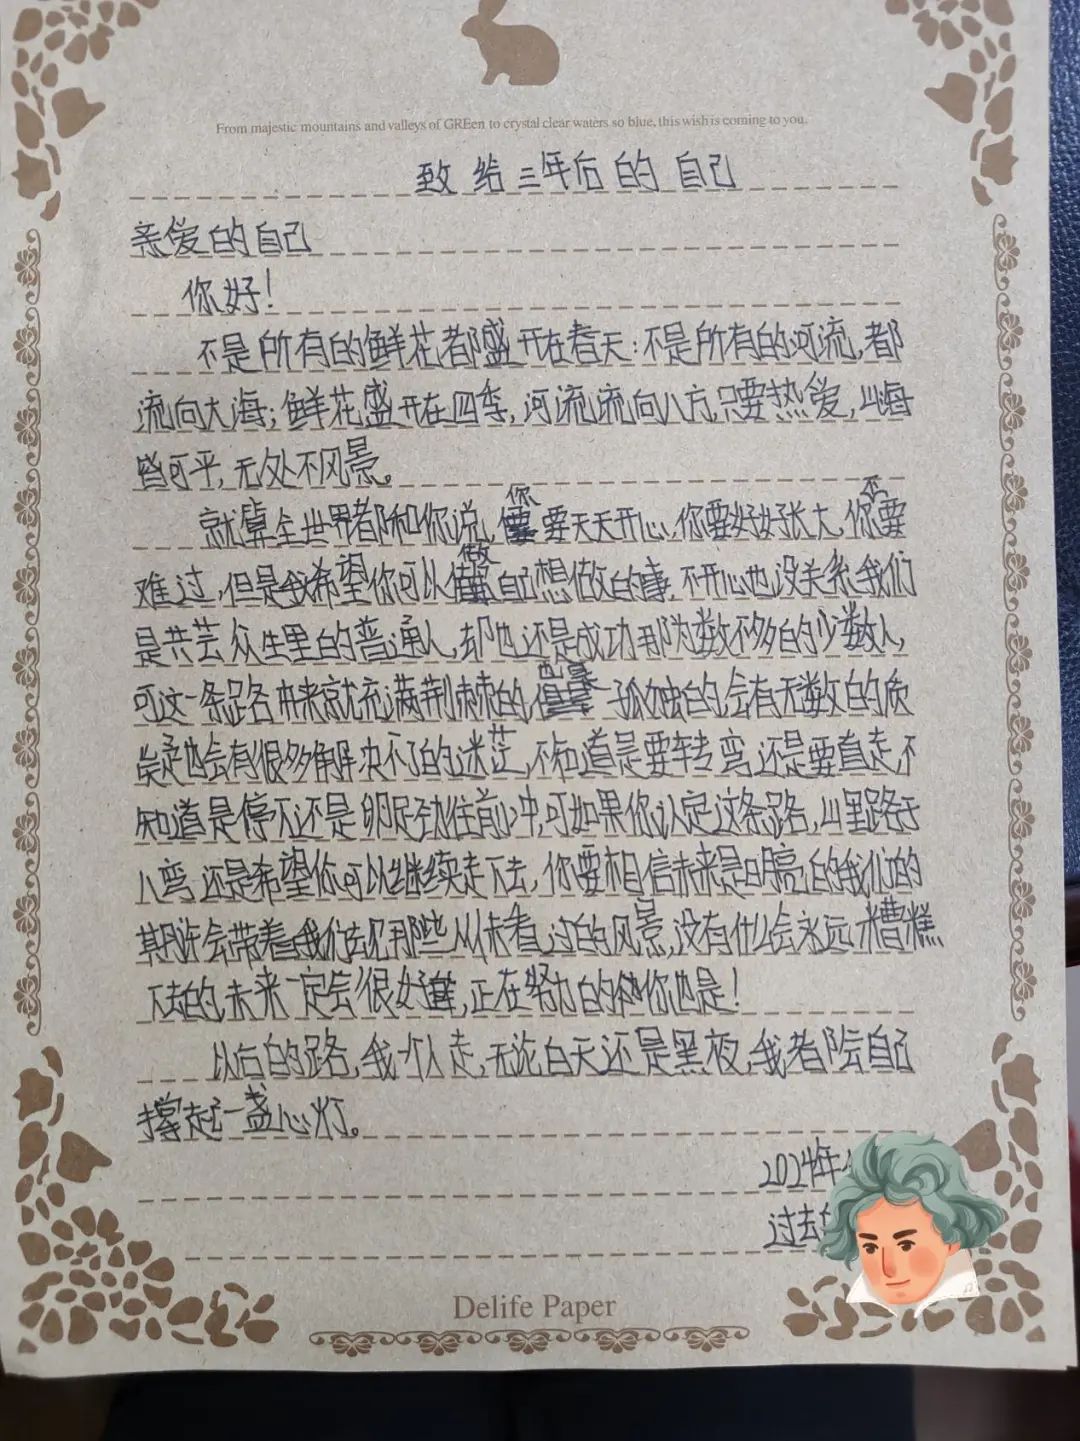 From majestic mountains and valleys of GREen to crystal clear waters so blue, this wish is coming to you.
致给三年后的自己
亲爱的自己
你好!
不是所有的鲜花,都盛开在春天:不是所有的河流,都
流向大海;鲜花盛开在四季,河流流向八方,只要热爱,山海
皆可平,无处不风景。
就算全世界都和你说,你要天天开心,你要好好长大,你不要
难过,但是我希望你可以做自己想做的事,不开心也没关系,我们
是共芸众生里的普通人,却也还是成功那为数不多的少数人,
可这一条路本来就充满荆棘的,也是孤独的,会有无数的质
疑也会有很多解决不了的迷茫,不知道是要转弯还是要直走,不
知道是停下还是卯足劲往前冲,可如果你认定这条路,山里路十
八弯,还是希望你可以继续走下去,你要相信未来是明亮的我们的
期许会带着我们去见那些从未看过的风景,没有什么会永远糟糕
下去的,未来一定会很好,正在努力的你也是!
以后的路,我一个人走,无论白天还是黑夜,我都会自己
撑起一盏心灯。
2024年
过去
Delife Paper